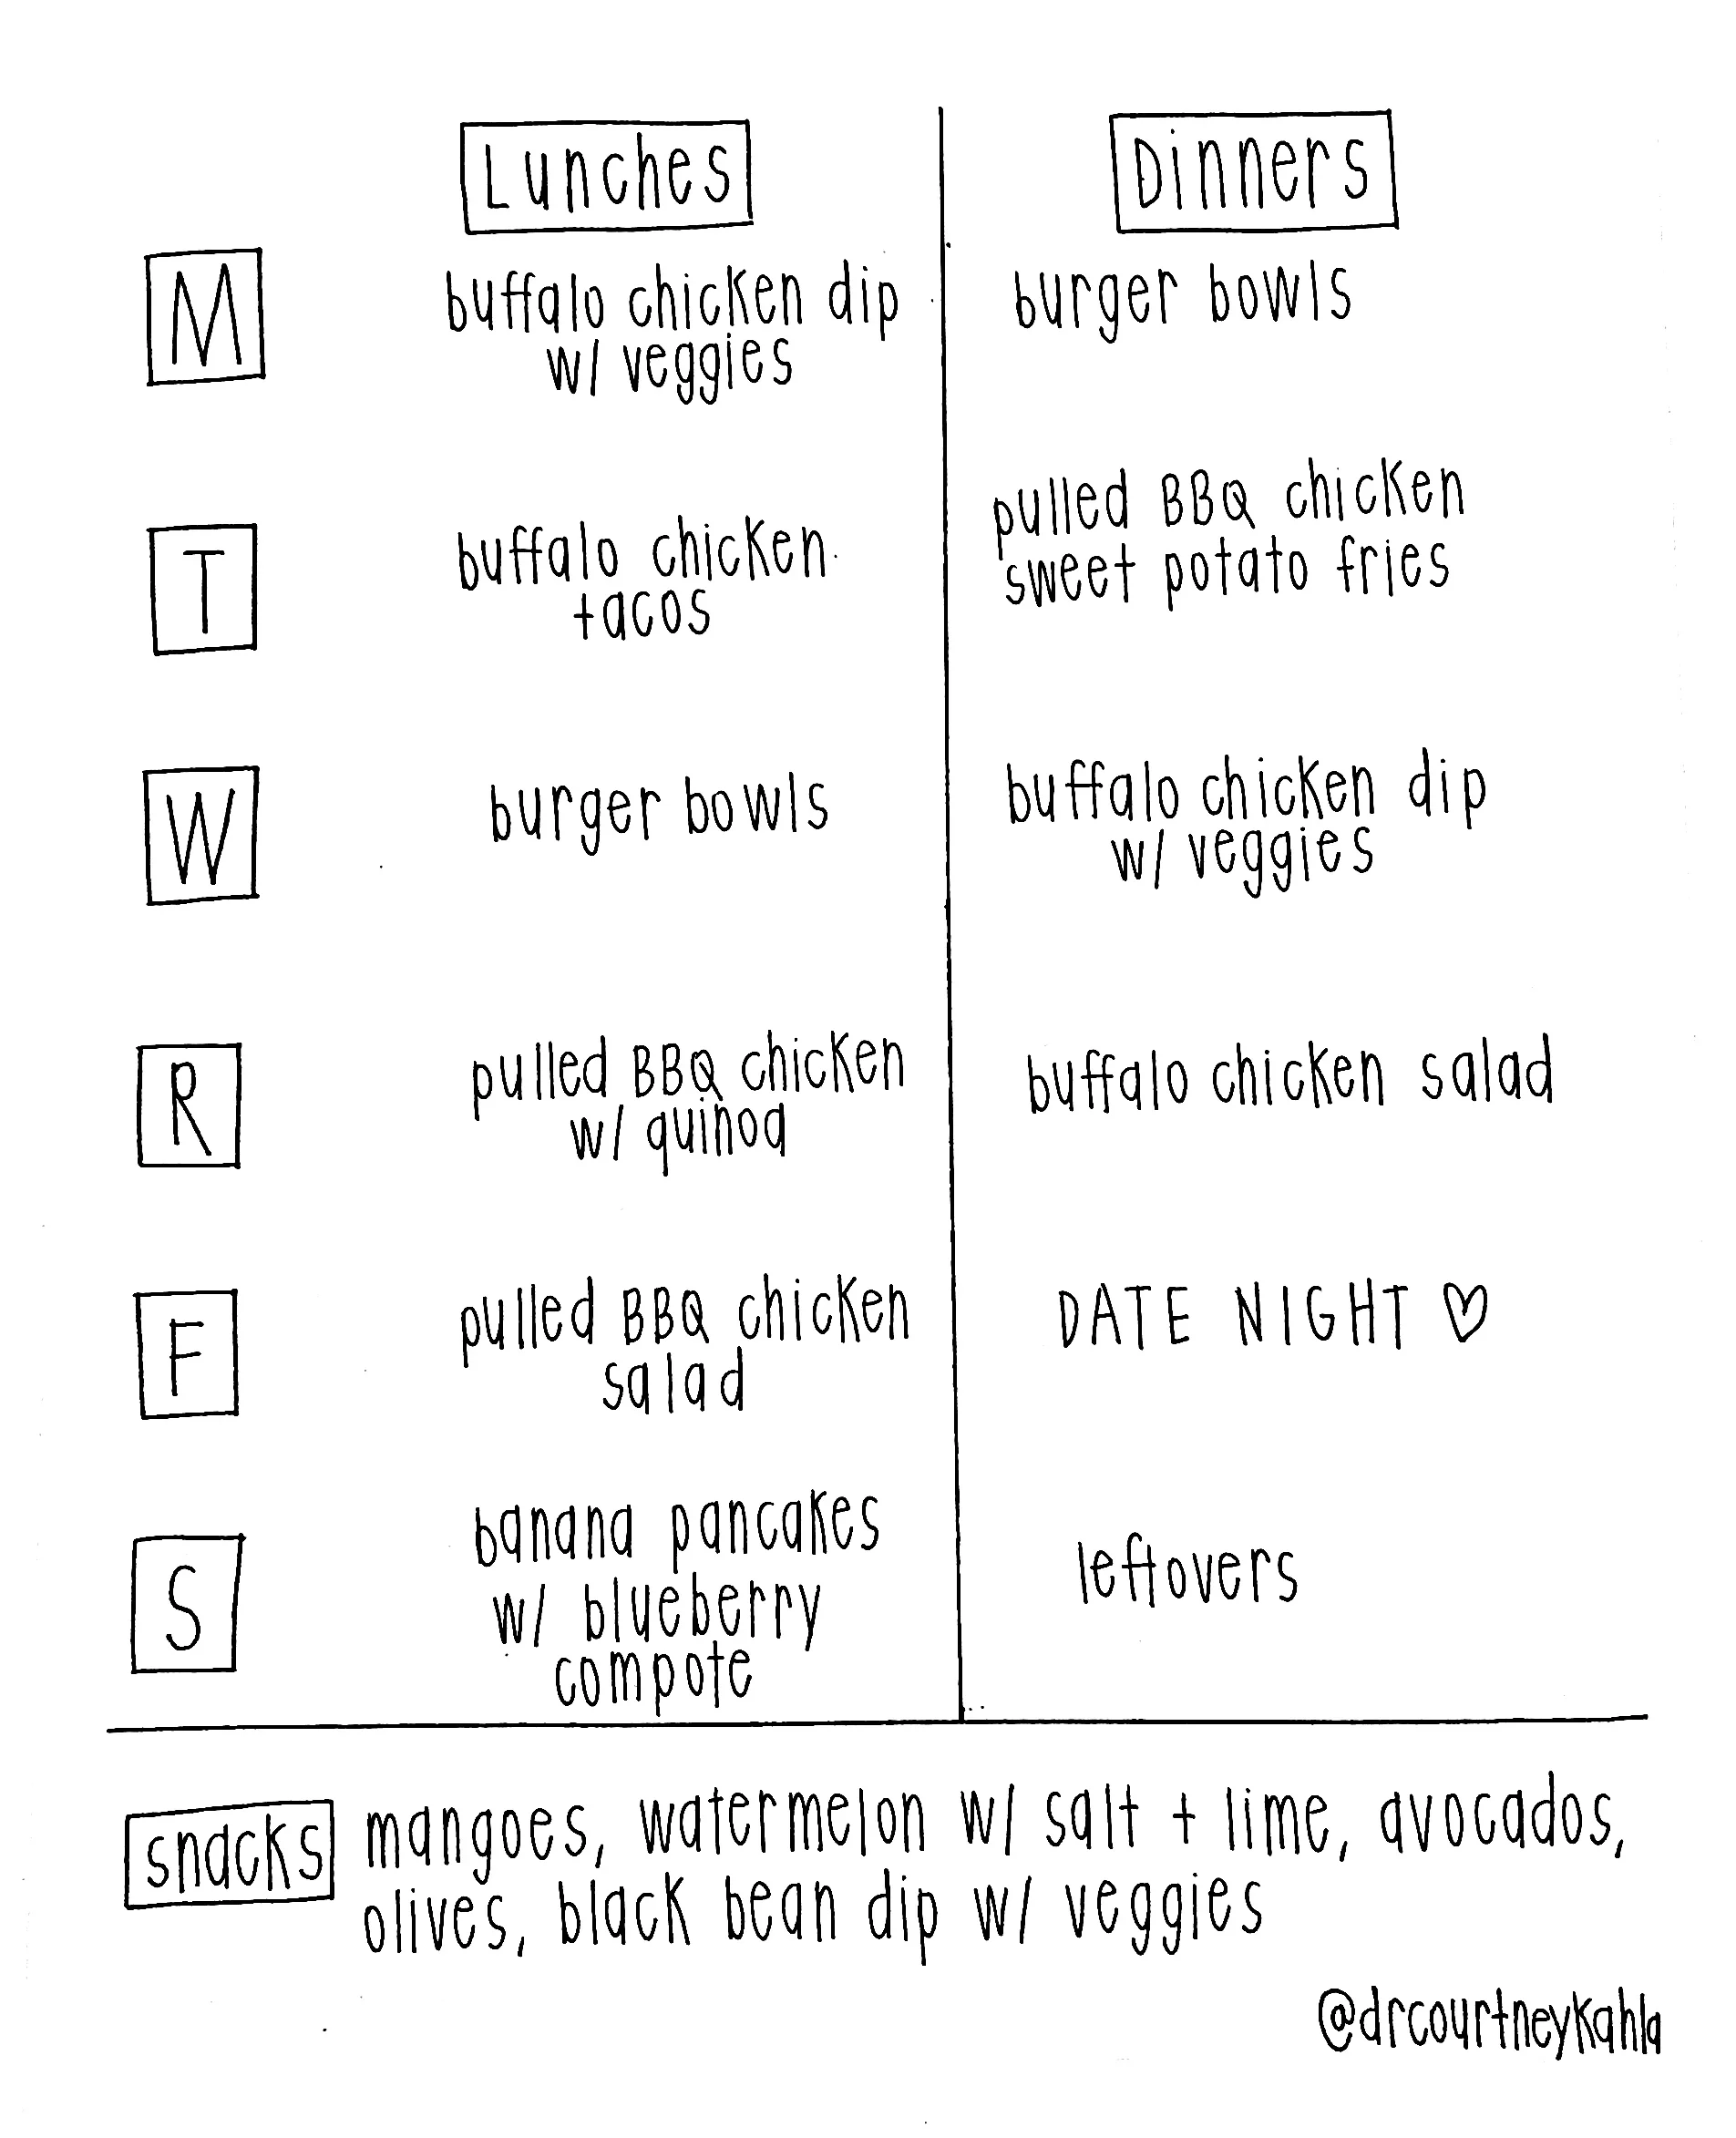 Lunches
Dinners
M
buffalo chicken dip
w/ veggies
burger bowls
T
buffalo chicken
tacos
pulled BBQ chicken
sweet potato fries
W
burger bowls
buffalo chicken dip
w/ veggies
R
pulled BBQ chicken
w/ quinoa
buffalo chicken salad
F
pulled BBQ chicken
salad
DATE NIGHT ♡
S
banana pancakes
w/ blueberry
compote
leftovers
snacks
mangoes, watermelon w/ salt + lime, avocados,
olives, black bean dip w/ veggies
@drcourtneykahla